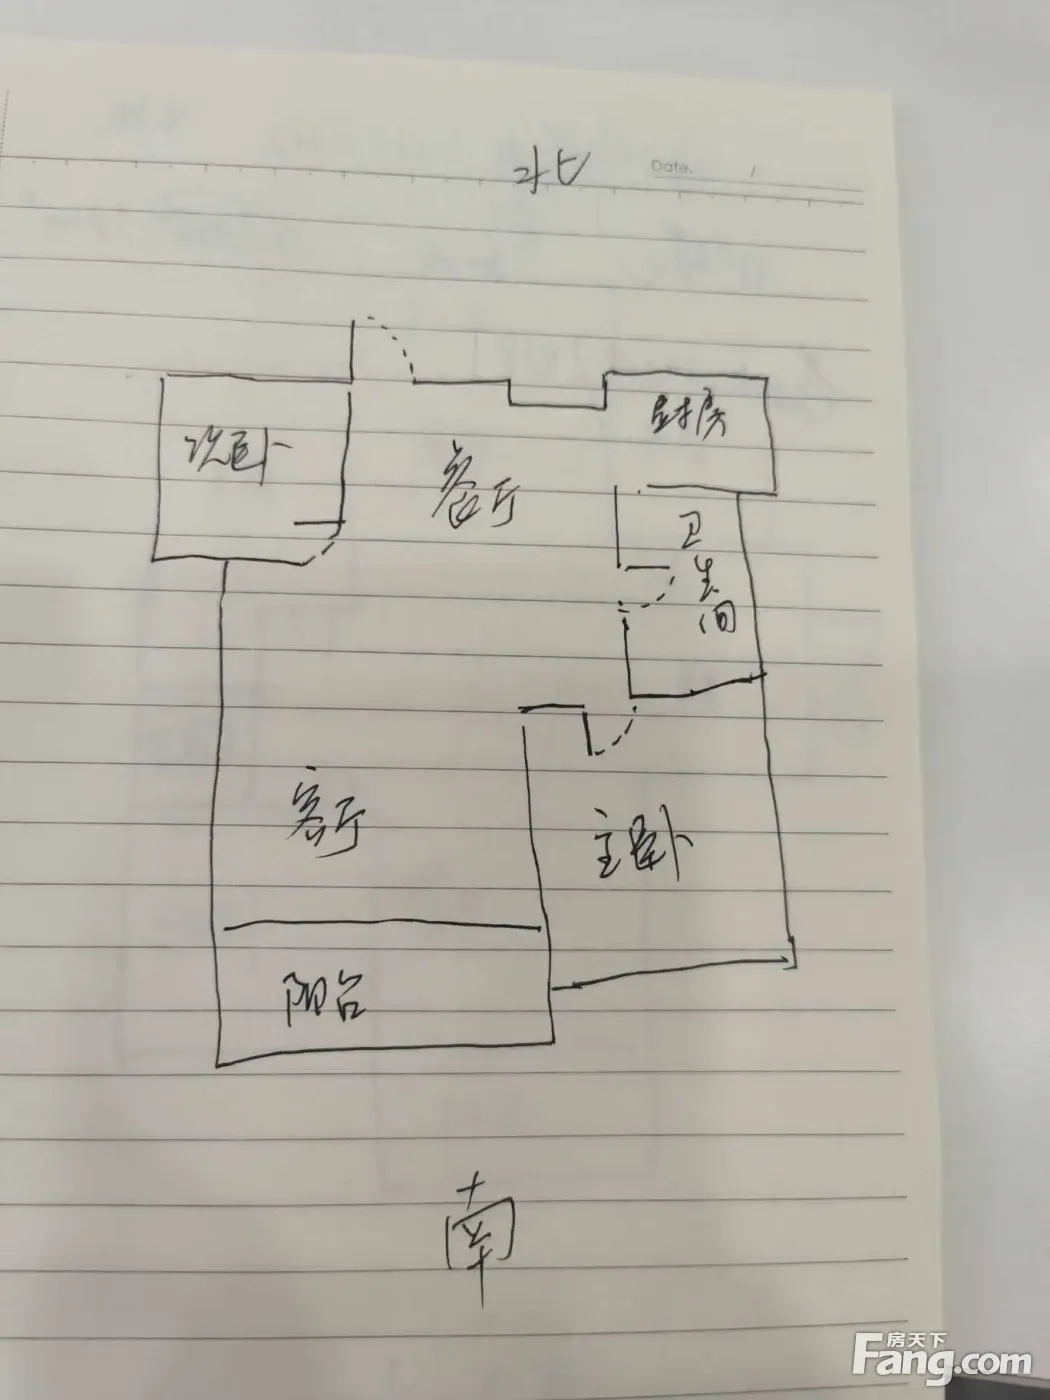 北
Date.
次卧
客厅
厨房
卫生间
客厅
主卧
阳台
南
房天下
Fang.com